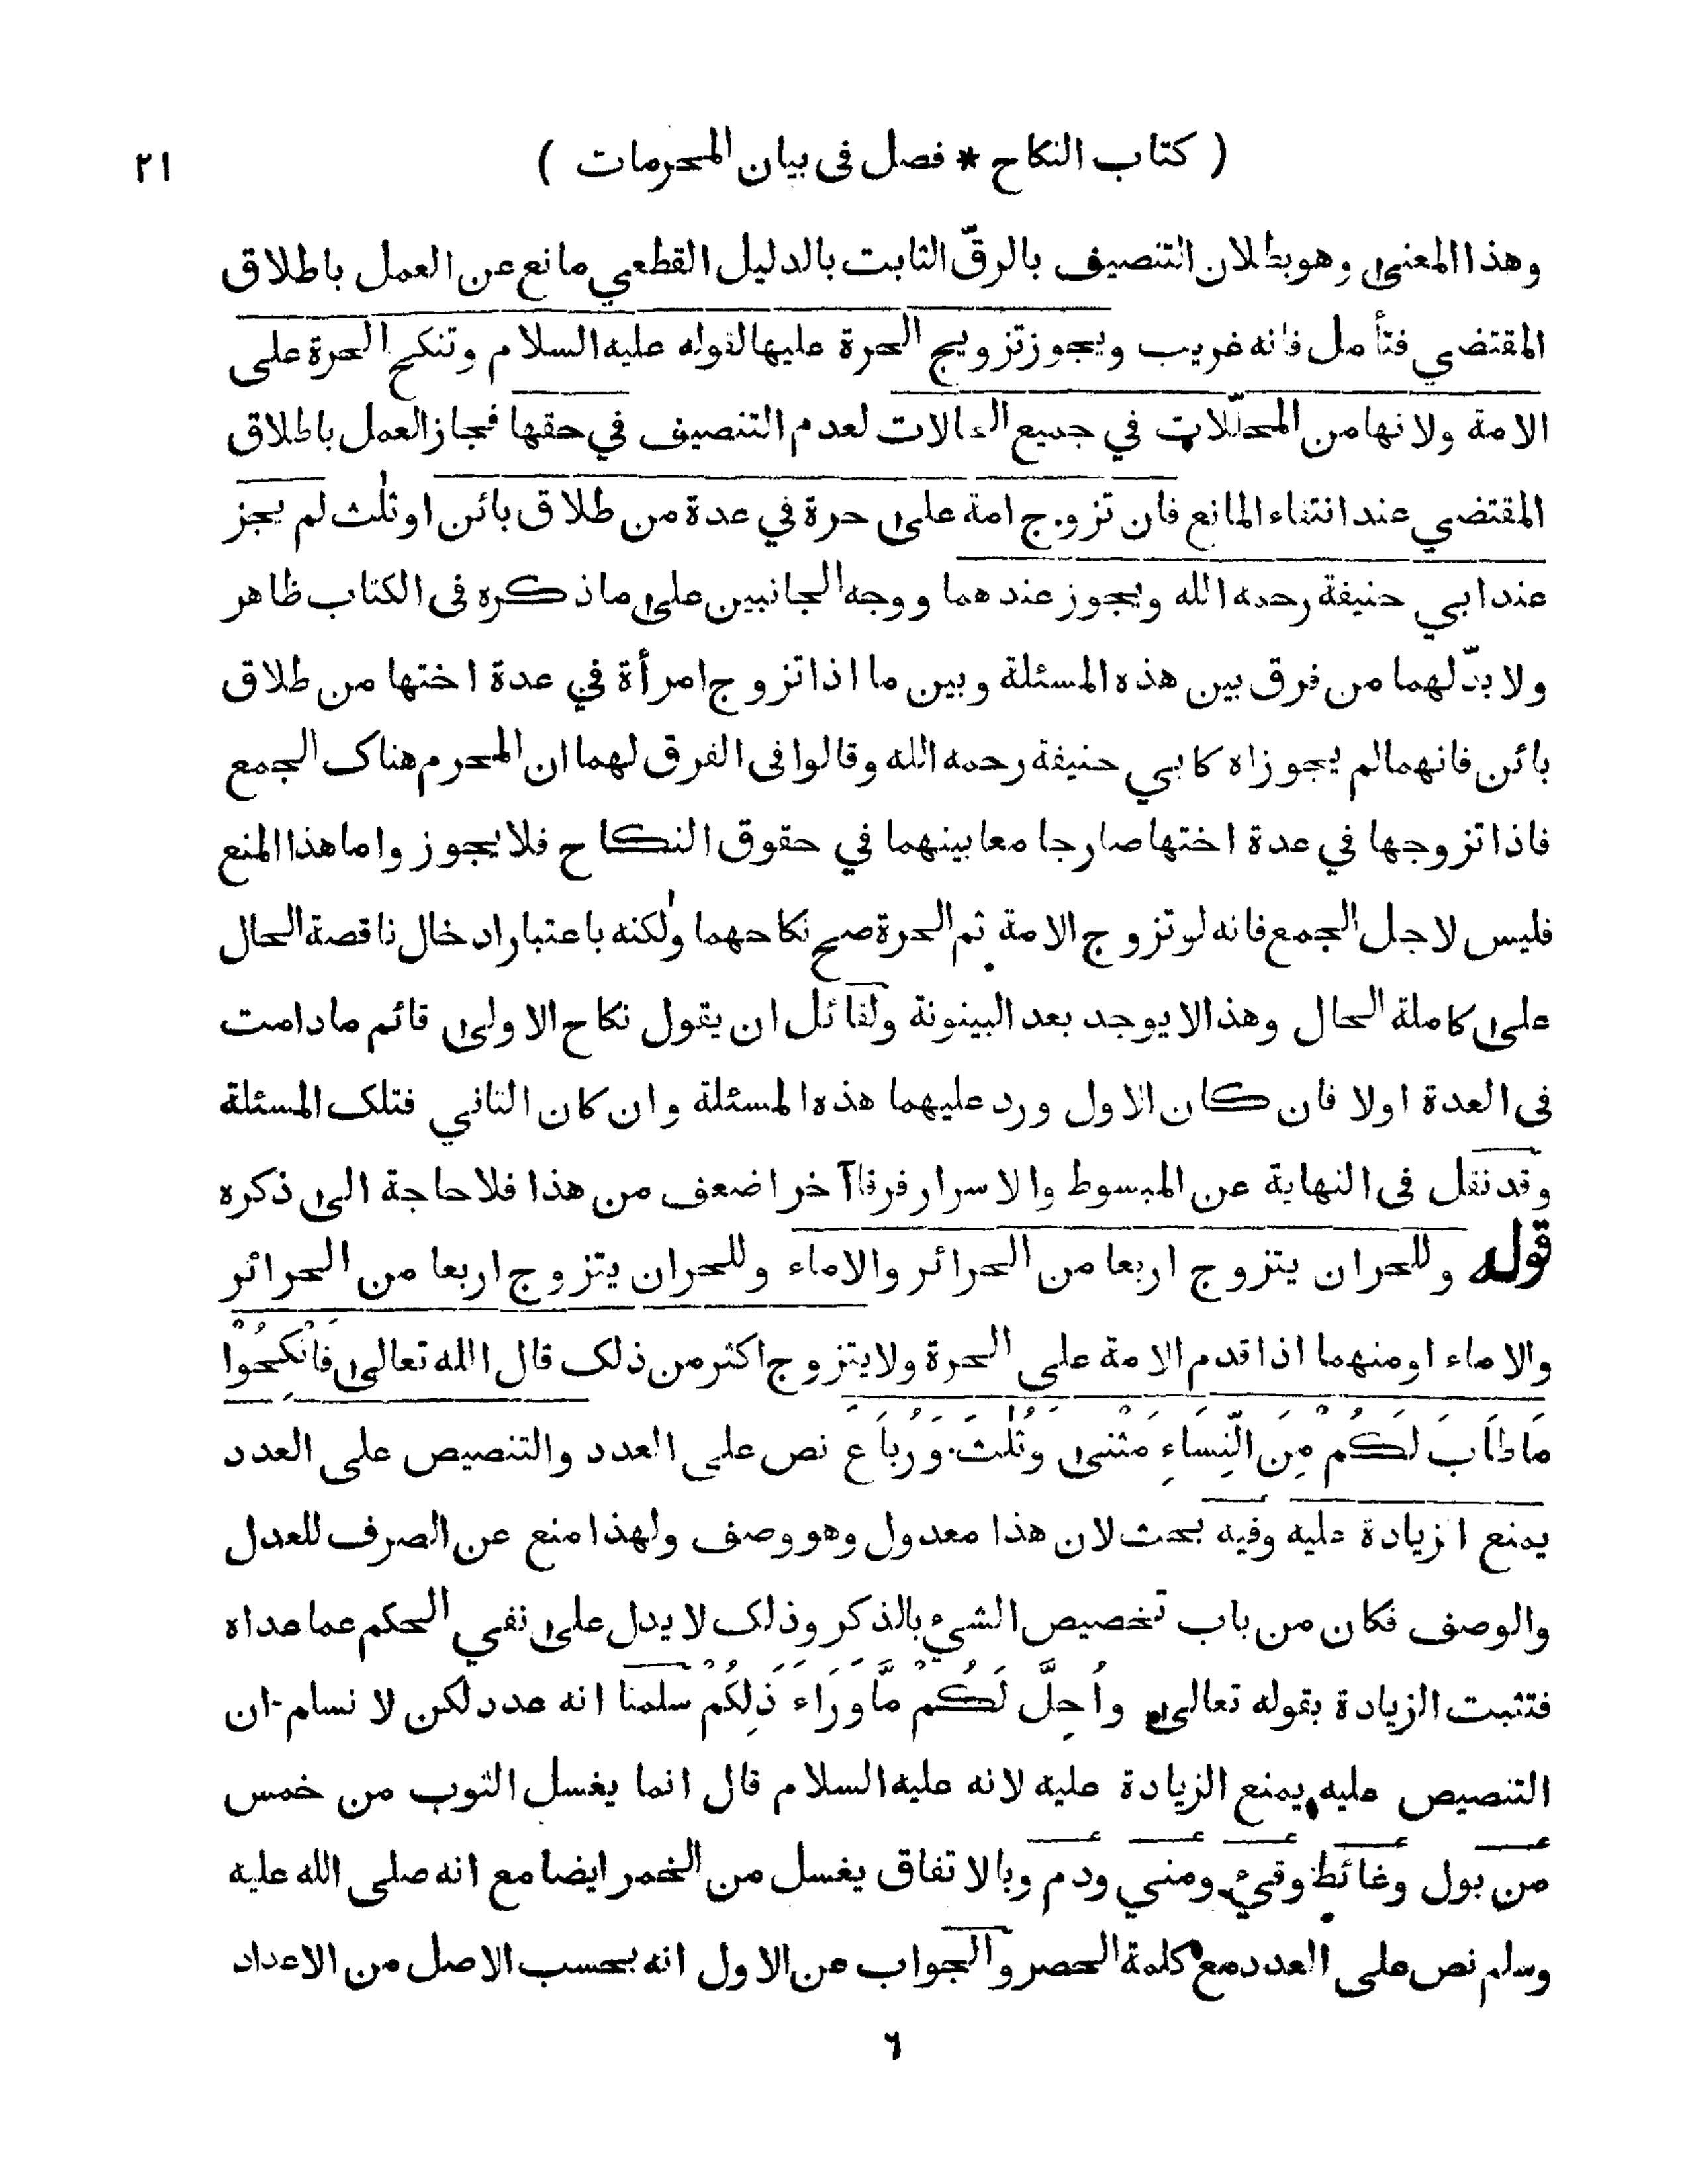 ( كتاب النكاح * فصل فى بيان المحرمات ) ٢١
وهذا المعنى وهو بطلان التنصيف بالرقّ الثابت بالدليل القطعي مانع عن العمل باطلاق
المقتضي فتأمل فانه غريب ويجوز تزويج الحرة عليها لقوله عليه السلام وتنكح الحرة على
الامة ولانها من المحلّلات في جميع الحالات لعدم التنصيف في حقها فجاز العمل باطلاق
المقتضي عند انتفاء المانع فان تزوج امة على حرة في عدة من طلاق بائن او ثلث لم يجز
عند ابي حنيفة رحمه الله ويجوز عندهما ووجه الجانبين على ما ذكره فى الكتاب ظاهر
ولا بدّ لهما من فرق بين هذه المسئلة وبين ما اذا تزوج امرأة في عدة اختها من طلاق
بائن فانهما لم يجوزاه كابي حنيفة رحمه الله وقالوا فى الفرق لهما ان المحرم هناك الجمع
فاذا تزوجها في عدة اختها صار جا معا بينهما في حقوق النكاح فلا يجوز واما هذا المنع
فليس لاجل الجمع فانه لو تزوج الامة ثم الحرة صح نكاحهما ولكنه باعتبار ادخال ناقصة الحال
على كاملة الحال وهذا لا يوجد بعد البينونة ولقائل ان يقول نكاح الاولى قائم مادامت
فى العدة اولا فان كان الاول ورد عليهما هذه المسئلة وان كان الثاني فتلك المسئلة
وقد نقل فى النهاية عن المبسوط والاسرار فرقا آخر اضعف من هذا فلا حاجة الى ذكره
قوله وللحران يتزوج اربعا من الحرائر والاماء وللحران يتزوج اربعا من الحرائر
والاماء او منهما اذا قدم الامة على الحرة ولا يتزوج اكثر من ذلك قال الله تعالى فَانْكِحُوْا
مَا طَابَ لَكُمْ مِنَ النِّسَاءِ مَثْنى وَثُلثَ وَرُبَاعَ نص على العدد والتنصيص على العدد
يمنع الزيادة عليه وفيه بحث لان هذا معدول وهو وصف ولهذا منع عن الصرف للعدل
والوصف فكان من باب تخصيص الشيء بالذكر وذلك لا يدل على نفي الحكم عما عداه
فتثبت الزيادة بقوله تعالى وَاُحِلَّ لَكُمْ مَّا وَرَاءَ ذَلِكُمْ سلمنا انه عدد لكن لا نسلم ان
التنصيص عليه يمنع الزيادة عليه لانه عليه السلام قال انما يغسل الثوب من خمس
من بول وغائط وقيء ومني ودم وبالاتفاق يغسل من الخمر ايضا مع انه صلى الله عليه
وسلم نص على العدد مع كلمة الحصر والجواب عن الاول انه بحسب الاصل من الاعداد
٦